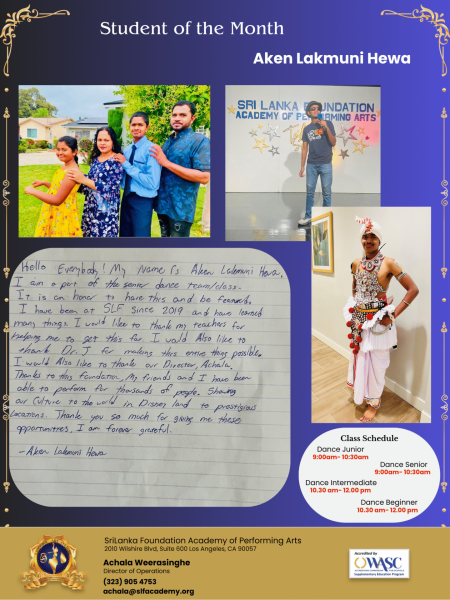 Student of the Month
Aken Lakmuni Hewa
SRI LANKA FOUNDATION
ACADEMY OF PERFORMING ARTS
Hello Everybody! My Name is Aken Lakmuni Hewa.
I am a part of the senior dance team/class.
It is an honor to have this and be featured.
I have been at SLF since 2019 and have learned
many things. I would like to thank my teachers for
helping me to get this far. I would Also like to
thank Dr. J for making this entire thing possible.
I would Also like to thank our Director, Achala.
Thanks to this foundation, My friends and I have been
able to perform for thousands of people, Showing
our Culture to the world in Disney land to prestigious
locations. Thank you so much for giving me these
opportunities, I am forever grateful.
-Aken Lakmuni Hewa
Class Schedule
Dance Junior
9:00am- 10:30am
Dance Senior
9:00am- 10:30am
Dance Intermediate
10.30 am- 12.00 pm
Dance Beginner
10.30 am- 12.00 pm
SriLanka Foundation Academy of Performing Arts
2010 Wilshire Blvd, Suite 600 Los Angeles, CA 90057
Achala Weerasinghe
Director of Operations
(323) 905 4753
achala@slfacademy.org
Accredited by
WASC
Supplementary Education Program